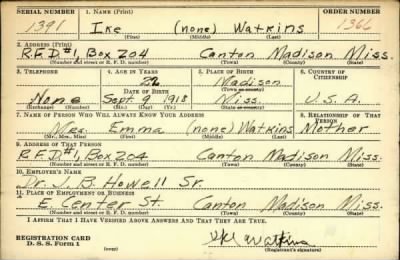 SERIAL NUMBER 1. NAME (Print) ORDER NUMBER
1391 Ike (none) Watkins 1366
(First) (Middle) (Last)
2. ADDRESS (Print)
R.F.D.#1, Box 204 Canton Madison Miss.
(Number and street or R. F. D. number) (Town) (County) (State)
3. TELEPHONE 4. AGE IN YEARS 5. PLACE OF BIRTH 6. COUNTRY OF CITIZENSHIP
22 Madison
DATE OF BIRTH (Town or county)
None Sept. 9 1918 Miss. U.S.A.
(Exchange) (Number) (Mo.) (Day) (Yr.) (State or country)
7. NAME OF PERSON WHO WILL ALWAYS KNOW YOUR ADDRESS 8. RELATIONSHIP OF THAT PERSON
Mrs. Emma (none) Watkins Mother
(Mr., Mrs., Miss) (First) (Middle) (Last)
9. ADDRESS OF THAT PERSON
R.F.D.#1, Box 204 Canton Madison Miss.
(Number and street or R. F. D. number) (Town) (County) (State)
10. EMPLOYER'S NAME
Dr. J. B. Howell Sr.
11. PLACE OF EMPLOYMENT OR BUSINESS
E. Center St. Canton Madison Miss.
(Number and street or R. F. D. number) (Town) (County) (State)
I AFFIRM THAT I HAVE VERIFIED ABOVE ANSWERS AND THAT THEY ARE TRUE.
REGISTRATION CARD
D. S. S. Form 1 (over) Ike Watkins
(Registrant's signature)